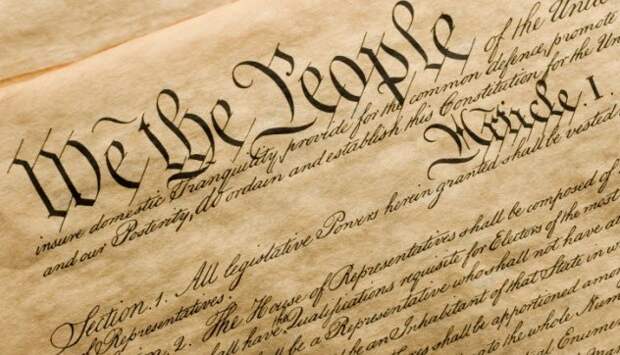 We the People of the Unite
insure domestic Tranquility, provide for the common defence, promote
and our Posterity, do ordain and establish this Constitution for the Un
Article. I.
Section. 1. All legislative Powers herein granted shall be vested
of Representatives.
2. The House of Representatives shall be composed of
shall have the Qualifications requisite for Electors of the most
shall be a Representative who shall not have at
be an Inhabitant of that State in w
shall be apportioned amon
to the whole Num
Enumer